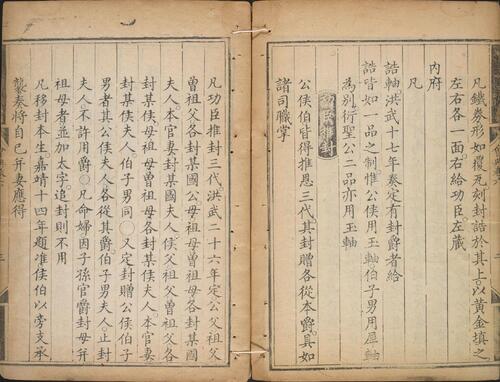 凡鐵券形如覆瓦刻封誥於其上以黃金填之
左右各一面右給功臣左藏
內府
凡
誥軸洪武十七年奏定有封爵者給
誥皆如一品之制惟公侯用玉軸伯子男用犀軸
為別衍聖公二品亦用玉軸
功臣推封
公侯伯皆得推恩三代其封贈各從本爵具如
諸司職掌
凡功臣推封三代洪武二十六年定公父祖父
曾祖父各封某國公母祖母曾祖母各封某國
夫人本官妻封某國夫人侯父祖父曾祖父各
封某侯母祖母曾祖母各封某侯夫人本官妻
封某侯夫人伯子男同○又定封贈公侯伯子
男者其公侯夫人各從其爵伯子男夫人止封
夫人不許用爵○凡命婦因子孫官封母并
祖母者並加太字追封則不用
凡移封本生嘉靖十四年題准侯伯以旁支承
襲奏將自己并妻應得